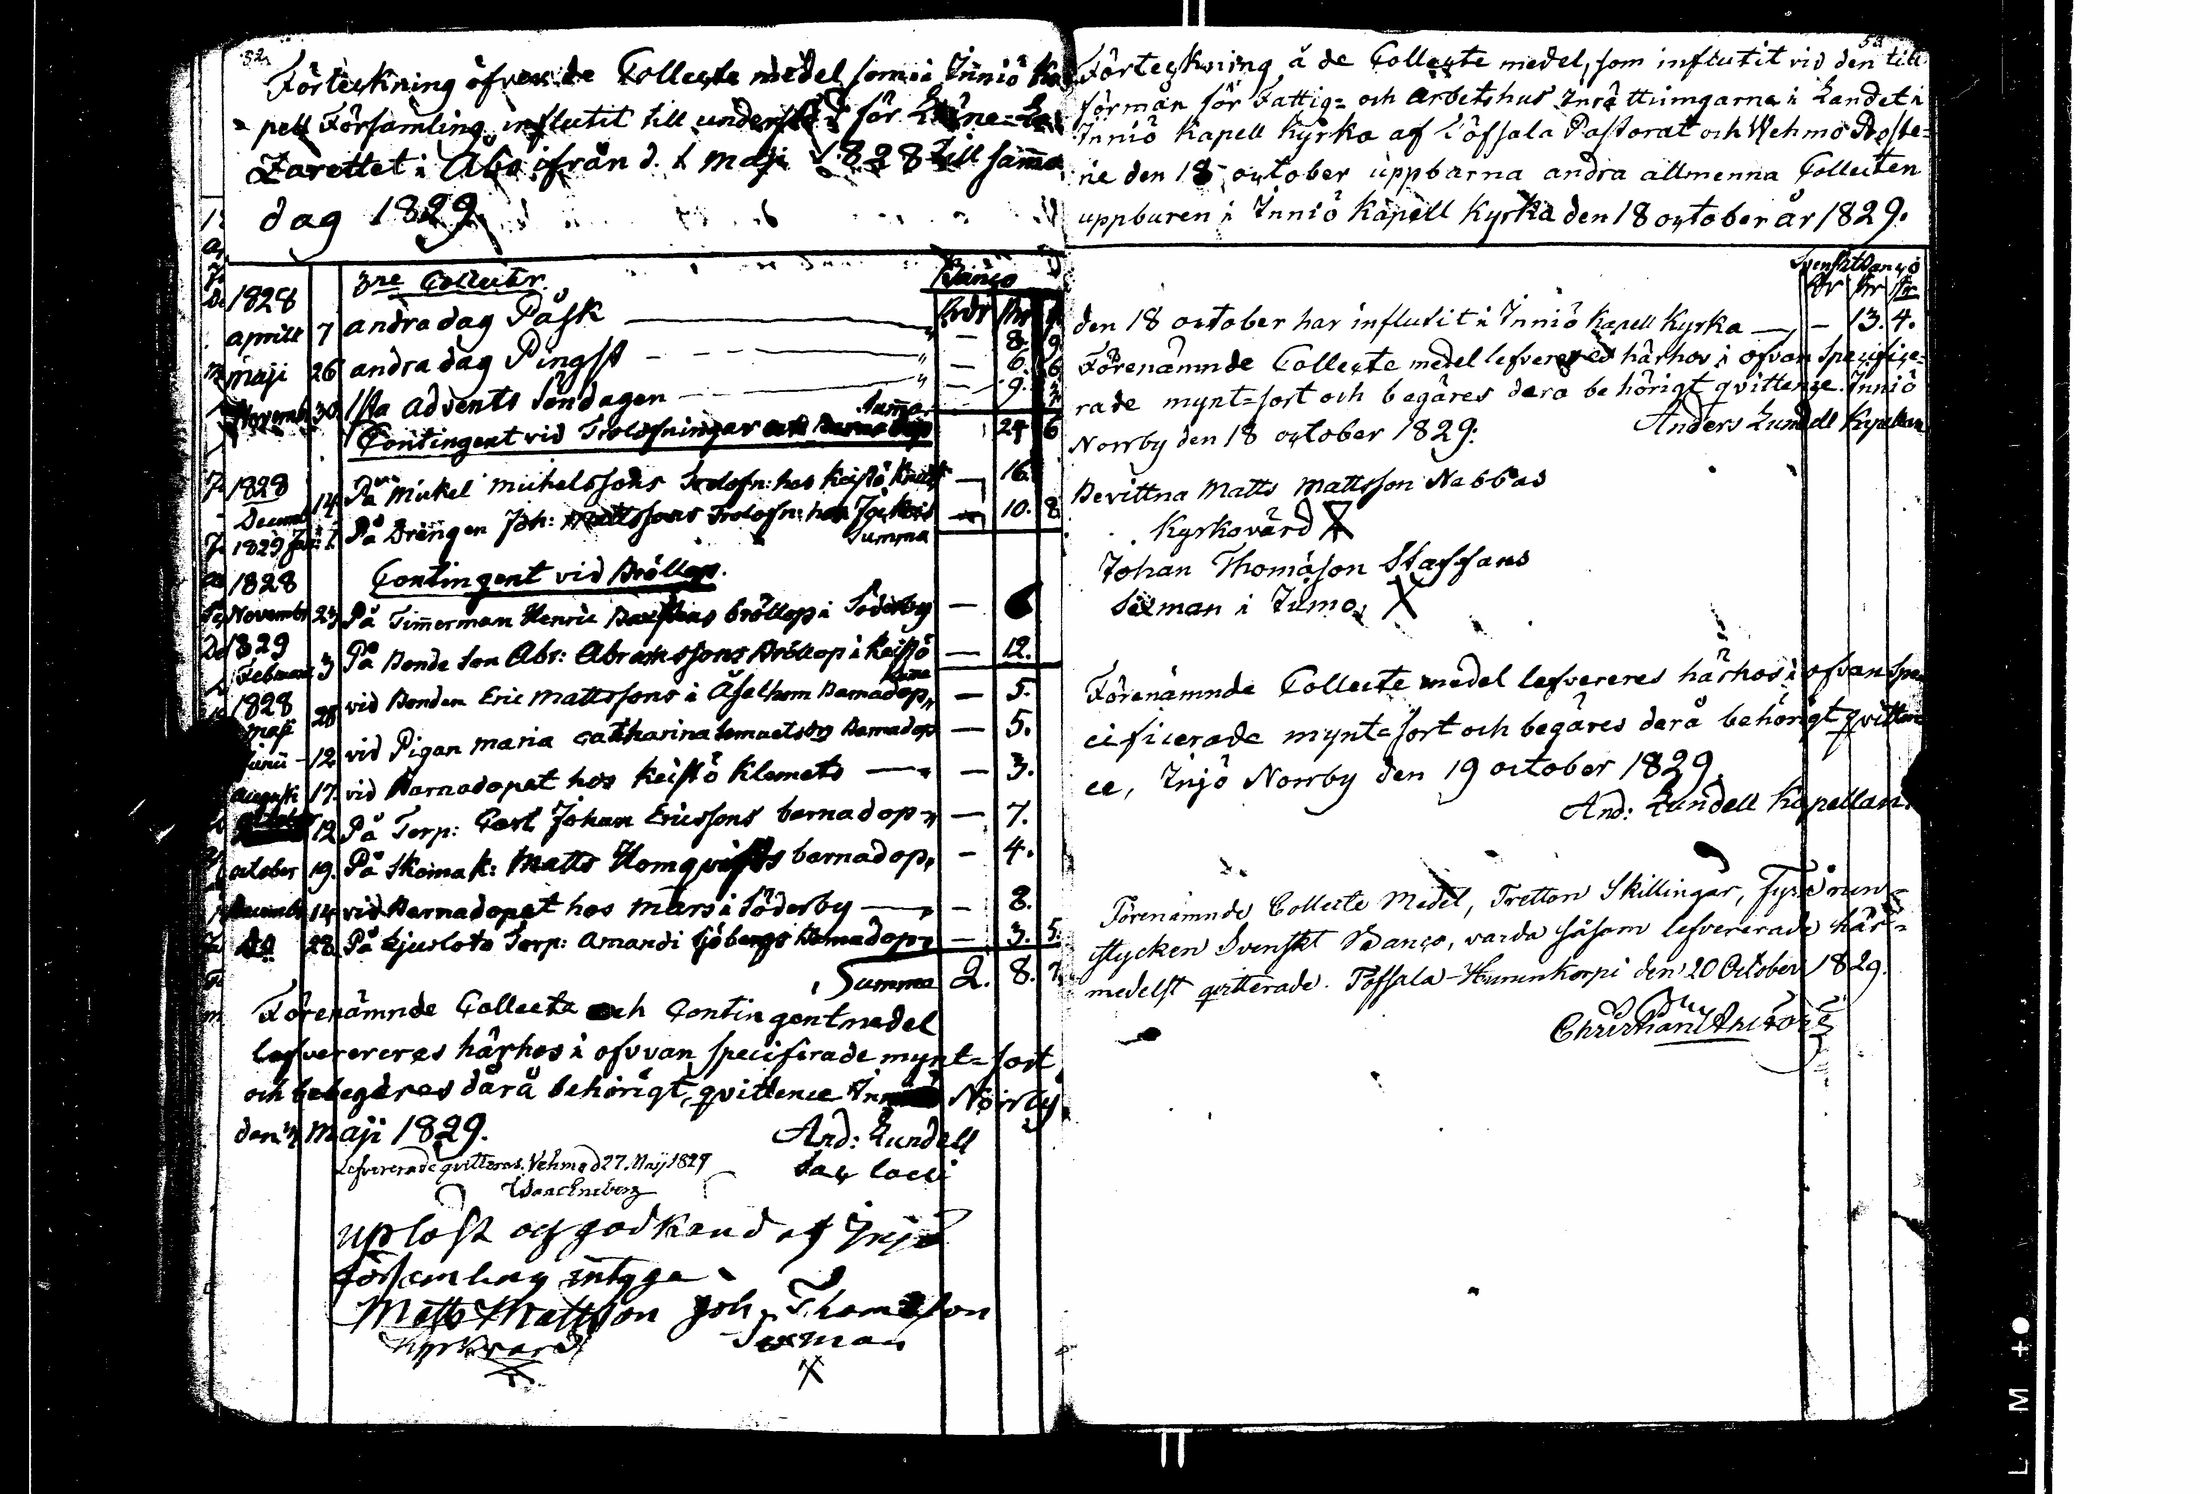 52.
Förteckning öfver de Collecte medel som i Inniö Ka
pell Församling influtit till understöd för Läne=La
Zarettet i Åbo ifrån d. 1 maji 1828 till samma
dag 1829
3ne Collecter. Banco
1828 Rdr skr
aprill 7 andra dag Påsk — 8. 9
maji 26 andra dag Pingst — 6. 6
Novemb 30 1sta advents Söndagen — 9.
Summa 24 6
Contingent vid Trolofningar
1828
Decemb 14 På Mickel Michelssons Trolofn: hos Keistö — 16.
1829 På Drängen Joh: Mattssons Trolofn: — 10. 8
Summa
1828 Contingent vid Bröllop.
Novembr 23 På Timmerman Henric bröllop i Söderby — 6
1829
Februari 3 På Bonde Son Abr: Abramssons Bröllop i Keistö — 12.
1828
maji 28 vid Bonden Eric Mattssons i Åselholm Barnadop, — 5.
Junii 12 vid Pigan Maria Catharina Barnadop — 5.
august 17. vid Barnadopet hos Keistö Klemets — 3.
12 På Torp: Carl Johan Ericssons barnadop, — 7.
october 19. På Skomak: Matts Homqvists barnadop, — 4.
Decembr 14 vid Barnadopet hos Mårs i Söderby — 8.
Do 28 På Torp: Amandi Sjöbergs Barnadop, — 3. 5.
Summa 2. 8.
Förenämnde Collecte och Contingentmedel
lefverereres härhos i ofvvan specifirade mynt=sort
och bebegäres därå behörigt, qvittence Norrby
den maji 1829. And: Lundell
Sac loci
Lefvererade qvitteras. Vehmo d 27. Maij 1829
uplöst och godkend af Injö
församling intyga
Matts Mattsson Joh. Thomasson
Kyrkvard Sexman
X X
53
Förteckning å de Collecte medel, som influtit vid den till
förmån för Fattig= och arbetshus Inrättningarna i Landet i
Inniö Kapell Kyrka af Töfsala Pastorat och Wehmo Proste=
rie den 18 october uppbarna andra allmenna Collecten
uppburen i Inniö Kapell Kyrka den 18 october år 1829.
Svenskt Banco
Rdr skr str
den 18 october har influtit i Inniö Kapell Kyrka — - 13. 4.
Förenämnde Collecte medel lefvereres härhos i ofvan specifice=
rade mynt=sort och begäres dera behörigt qvittense. Inniö
Norrby den 18 october 1829: Anders Lundell Kapellan
Bevittna Matts Mattsson Nabbas
Kyrkovärd X
Johan Thomasson Staffans
Sexman i Jumo, X
Förenämnde Collecte medel lefvereres härhos i ofvan spe
cificerade mynt=sort och begäres derå behörigt qvitten
ce, Injö Norrby den 19 october 1829.
And: Lundell Kapellan.
Förenämnde Collecte Medel, Tretton Skillingar, fyra run=
stycken Svenskt Banco, varda såsom lefvererade här=
medelst qvitterade. Töfsala-Hurunkorpi den 20 October 1829.